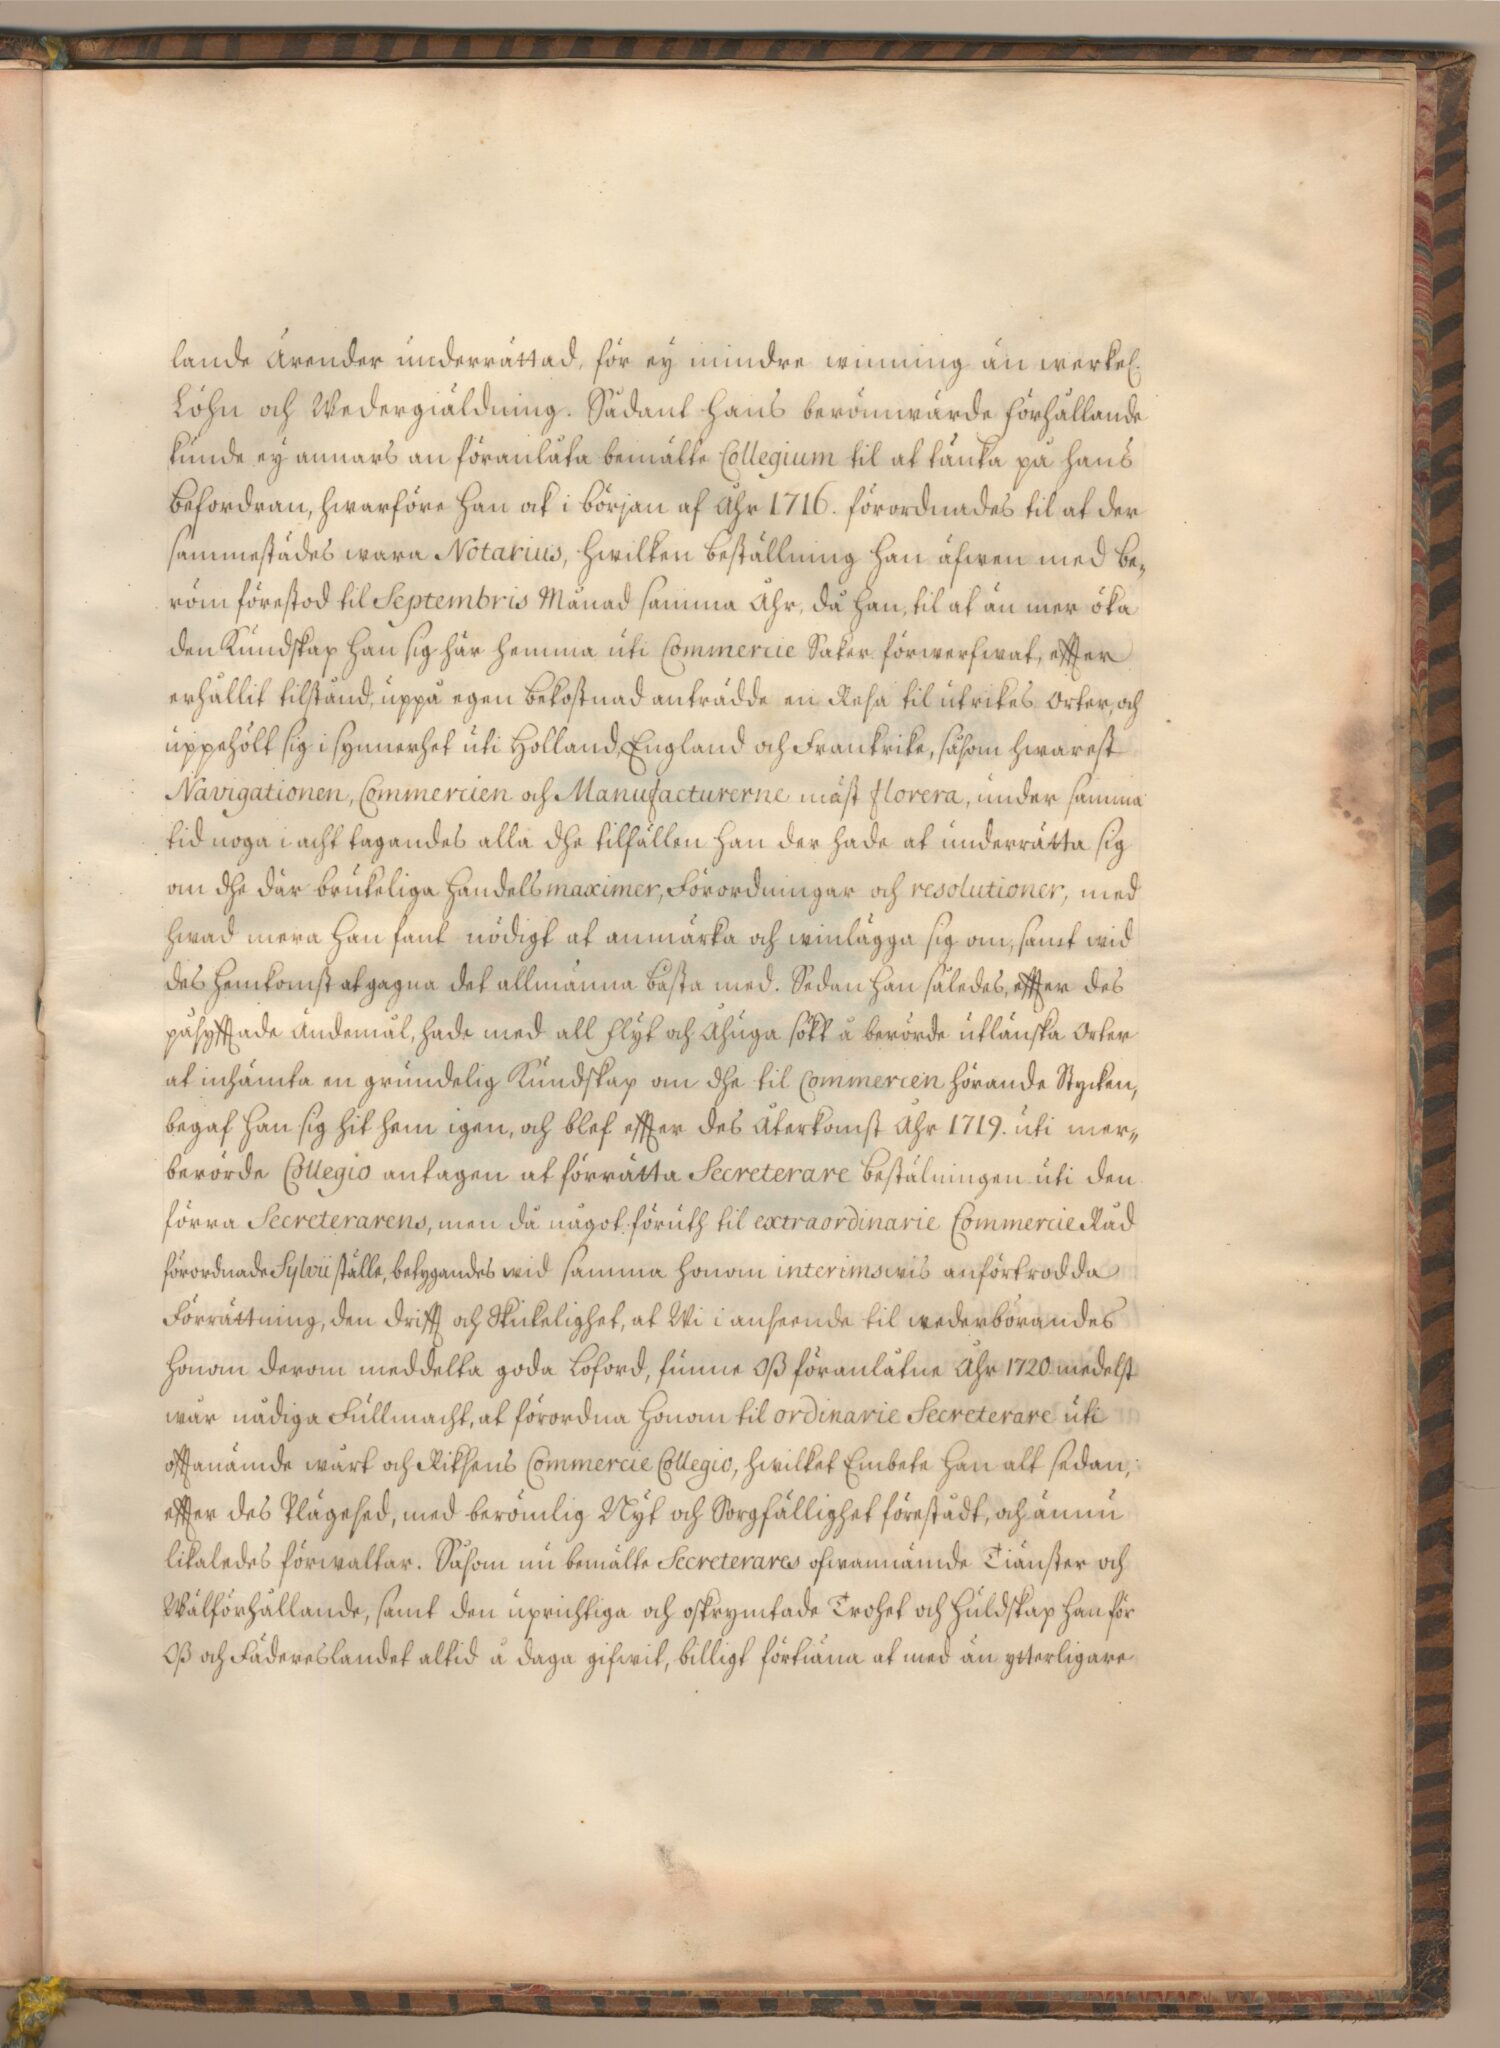 lande Ärender underrättad, för ey mindre winning än werkel.
Löhn och Wedergiäldning. Sådant hans berömwärde förhållande
kunde ey annars än föranlåta bemälte Collegium til at tänka på hans
befordran, hwarföre han ock i början af Åhr 1716. förordnades til at der
sammestädes wara Notarius, hwilken beställning han äfwen med be„
röm förestod til Septembris Månad samma Åhr, då han, til at än mer öka
den Kundskap han sig här hemma uti Commercie Saker förwerfwat, effter
erhållit tilstånd, uppå egen bekostnad anträdde en Resa til utrikes Orter, och
uppehölt sig i synnerhet uti Holland, England och Frankrike, såsom hwarest
Navigationen, Commercien och Manufacturerne mäst florera, under samma
tid noga i acht tagandes alla dhe tilfällen han der hade at underrätta sig
om dhe där brukeliga handels maximer, Förordningar och resolutioner, med
hwad mera han fant nödigt at anmärka och winlägga sig om, samt wid
des hemkomst at gagna det allmänna bästa med. Sedan han således, effter des
påsyfftade ändemål, hade med all flyt och Åhuga sökt å berörde utländska Orter
at inhämta en grundelig Kundskap om dhe til Commercien hörande Stycken,
begaf han sig hit hem igen, och blef effter des Återkomst Åhr 1719. uti mer„
berörde Collegio antagen at förrätta Secreterare beställningen uti den
förra Secreterarens, men då något föruth til extraordinarie Commercie Råd
förordnade Sylvii ställe, betygandes wid samma honom interimswis anförtrodda
Förrättning, den drifft och Skickelighet, at Wi i anseende til wederbörandes
honom derom meddelta goda loford, funne Oß föranlåtne Åhr 1720 medelst
wår nådiga Fullmacht, at förordna honom til ordinarie Secreterare uti
offtanämde wårt och Riksens Commercie Collegio, hwilket Embete han alt sedan,
effter des Plägesed, med berömlig Nyt och Sorgfällighet förestådt, och ännu
likaledes förwaltar. Såsom nu bemälte Secreterares ofwannämde Tiänster och
Wälförhållande, samt den uprichtiga och oskrymtade Trohet och Huldskap han för
Oß och Fäderneslandet altid å daga gifwit, billigt förtiäna at med än ytterligare